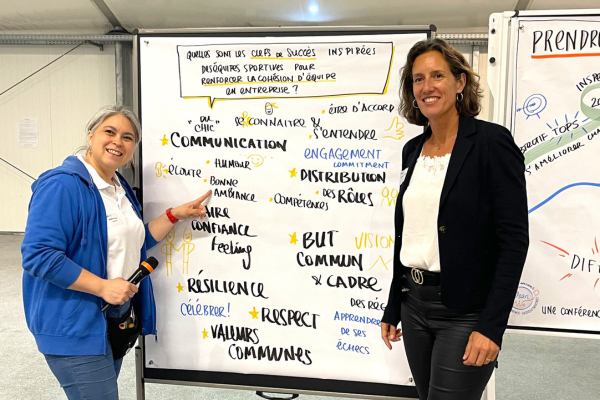 QUELLES SONT LES CLEFS DE SUCCÈS INSPIRÉES
D'ÉQUIPES SPORTIVES POUR
RENFORCER LA COHÉSION D'ÉQUIPE
EN ENTREPRISE ?
"DU
CHIC"
SE CONNAITRE &
ÊTRE D'ACCORD
S'ENTENDRE
COMMUNICATION
ENGAGEMENT
COMMITMENT
ÉCOUTE
HUMOUR
DISTRIBUTION
DES RÔLES
BONNE
AMBIANCE
COMPÉTENCES
CONFIANCE
Feeling
BUT
COMMUN
& CADRE
VISION
RÉSILIENCE
CÉLÉBRER!
RESPECT
APPRENDRE
DE SES
ÉCHECS
VALEURS
COMMUNES
PRENDRE
TOPS
S'AMÉLIORER
UNE CONFÉRENC